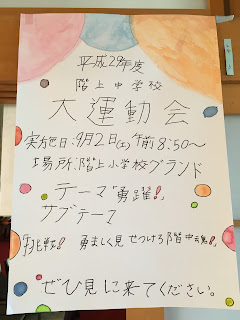 平成29年度
階上中学校
大運動会
実施日:9月2日(土)午前8:50〜
場所:階上小学校グランド
テーマ「勇躍!!」
サブテーマ
「挑戦!! 勇ましく見せつけろ階中魂!!」
ぜひ見に来てください。